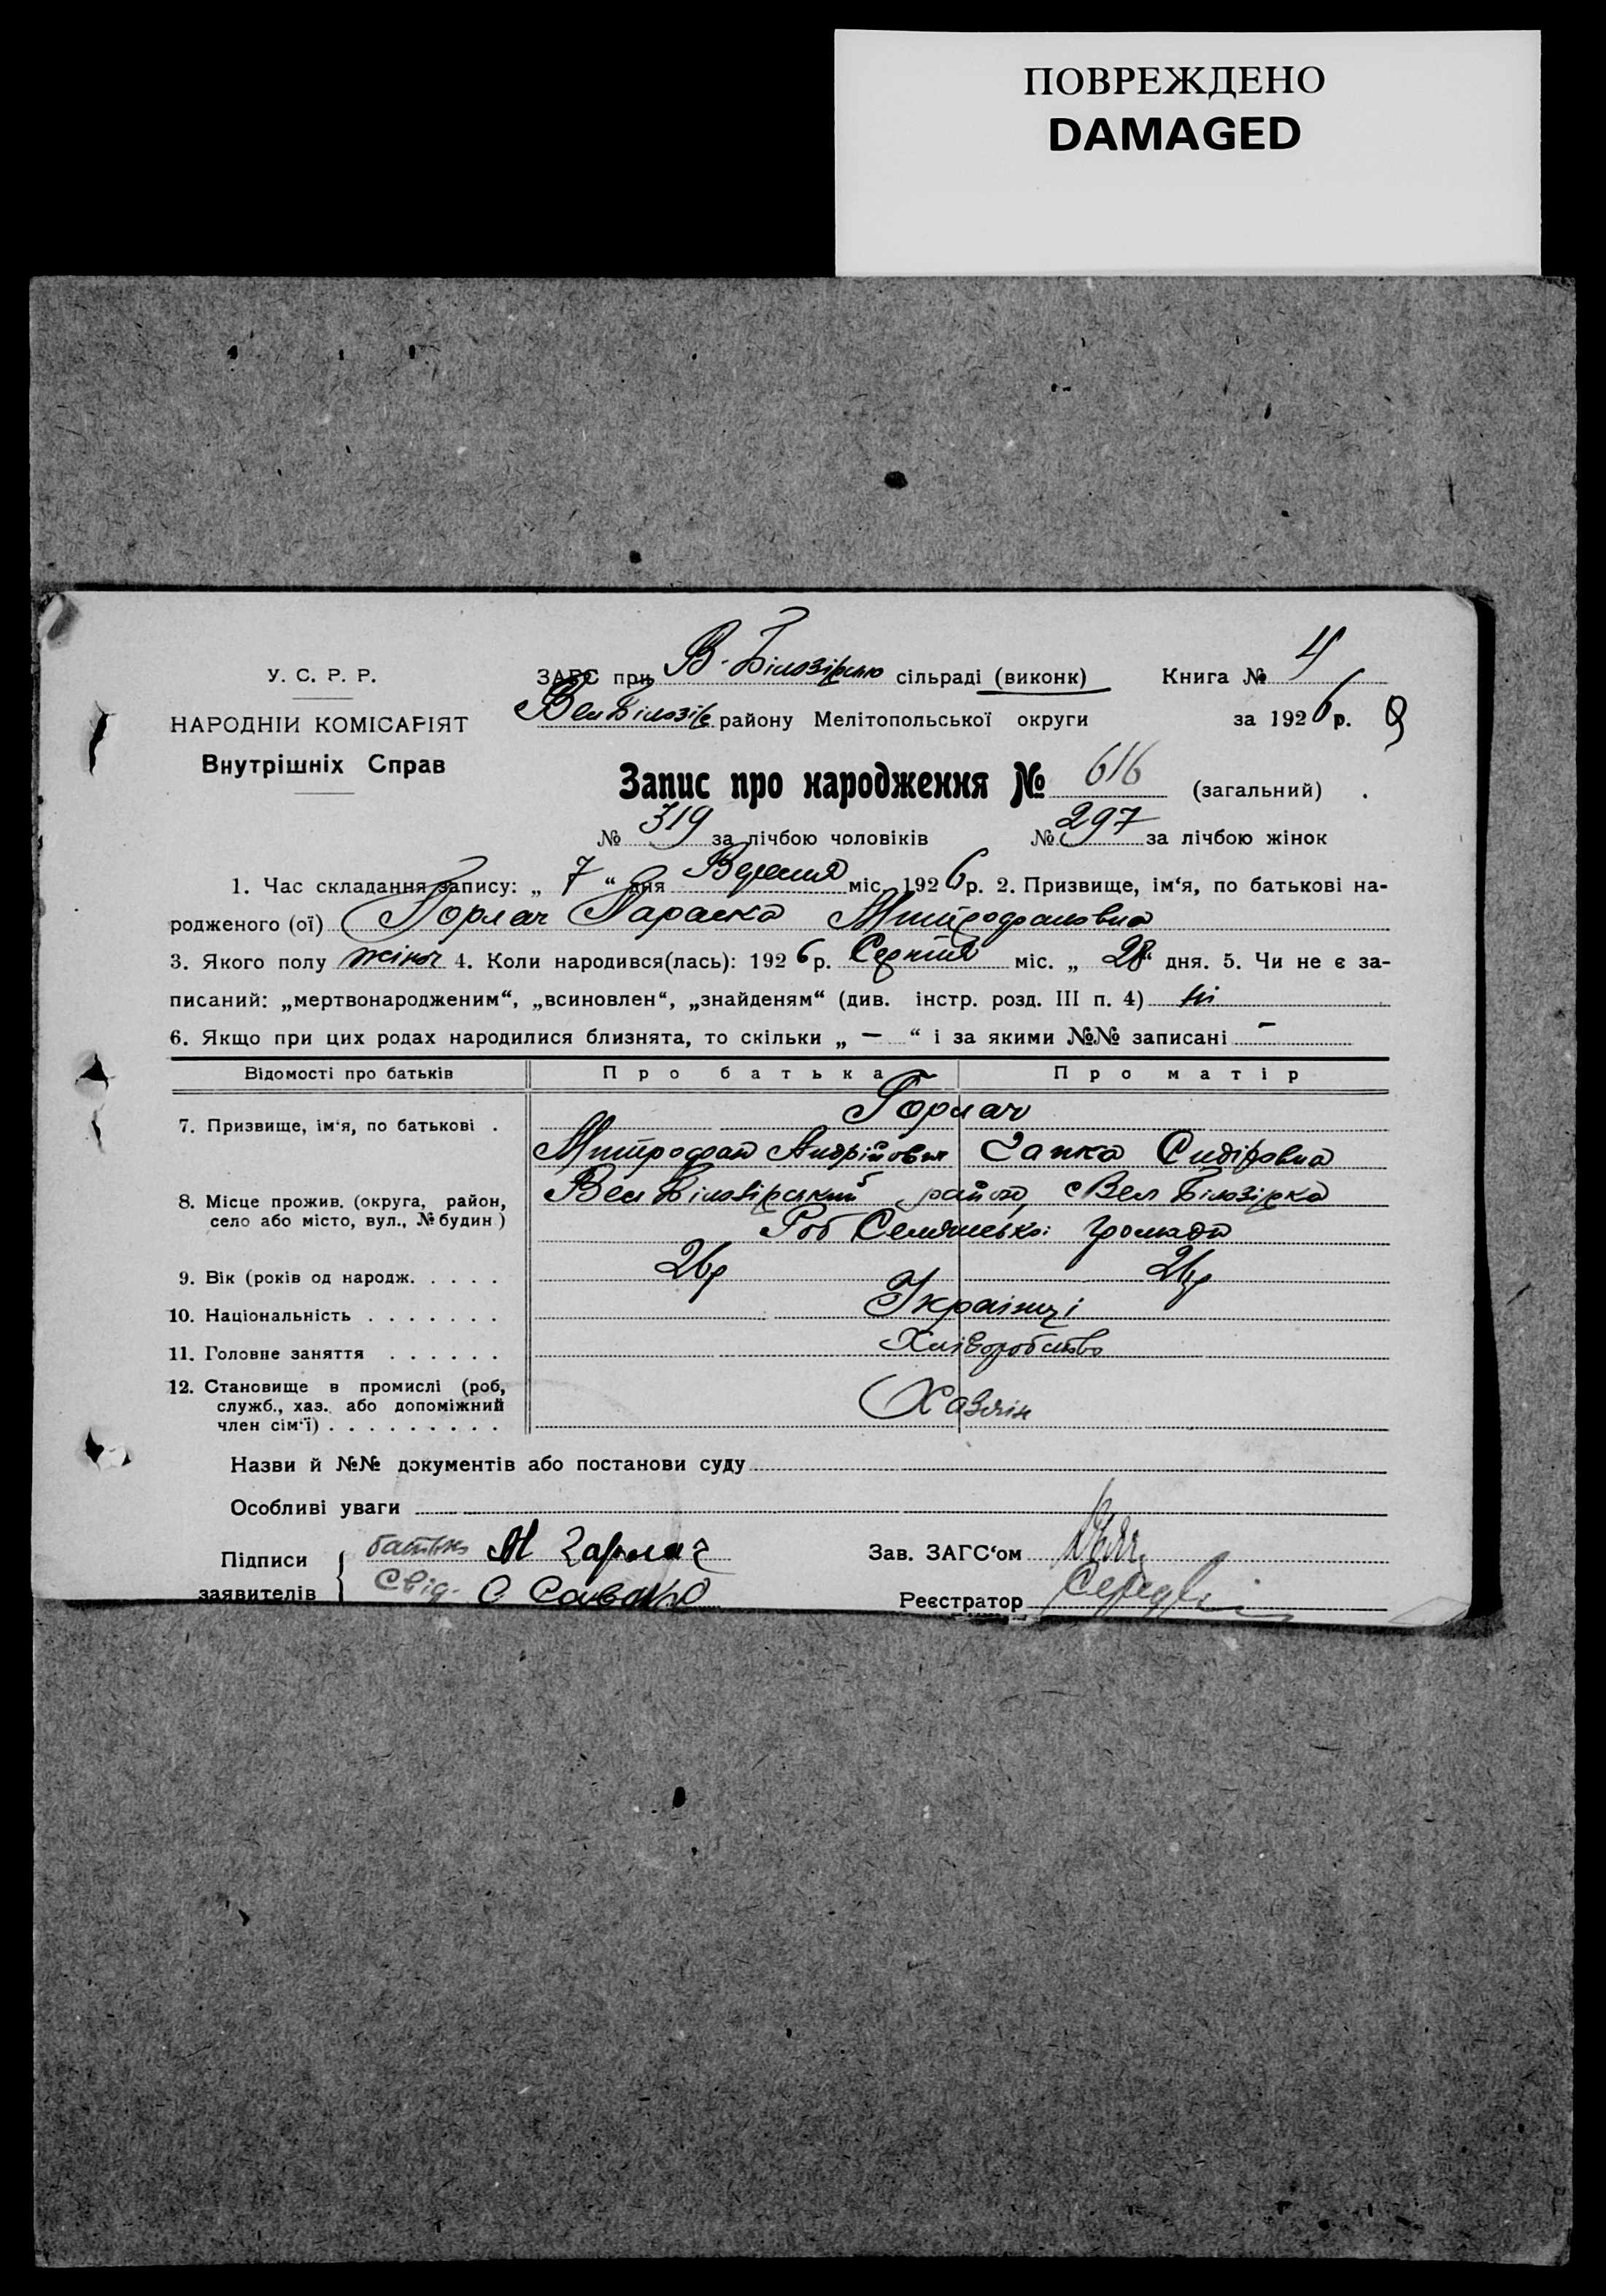 ПОВРЕЖДЕНО
DAMAGED
У. С. Р. Р.
НАРОДНІЙ КОМІСАРІЯТ
Внутрішніх Справ
ЗАГС при В-Білозірською сільраді (виконк) Книга № 4
Вел Білозір району Мелітопольської округи за 1926 р.
Запис про народження № 616 (загальний)
№ 319 за лічбою чоловіків № 297 за лічбою жінок
1. Час складання запису: „ 7 “ дня Вересня міс. 1926 р. 2. Призвище, ім‘я, по батькові на-
родженого (ої) Горлач Параска Митрофановна
3. Якого полу жіноч 4. Коли народився(лась): 1926 р. Серпня міс. „ 28 “ дня. 5. Чи не є за-
писаний: „мертвонародженим“, „всиновлен“, „знайденям“ (див. інстр. розд. III п. 4) ні
6. Якщо при цих родах народилися близнята, то скільки „ — “ і за якими №№ записані —
Відомості про батьків Про батька Про матір
7. Призвище, ім‘я, по батькові . Горлач
Митрофан Андрійович Ганка Сидіровна
8. Місце прожив. (округа, район, село або місто, вул., № будин) Вел Білозірський район, с Вел Білозірка
Роб Селянської громади
9. Вік (років од народж. . . . . 26р 26р
10. Національність . . . . . . . Українці
11. Головне заняття . . . . . . Хліборобство
12. Становище в промислі (роб,
служб., хаз. або допоміжний
член сім‘ї) . . . . . . . . . Хазяїн
Назви й №№ документів або постанови суду
Особливі уваги
Підписи батько М Гарлач Зав. ЗАГС‘ом
заявителів Свід. С Реєстратор